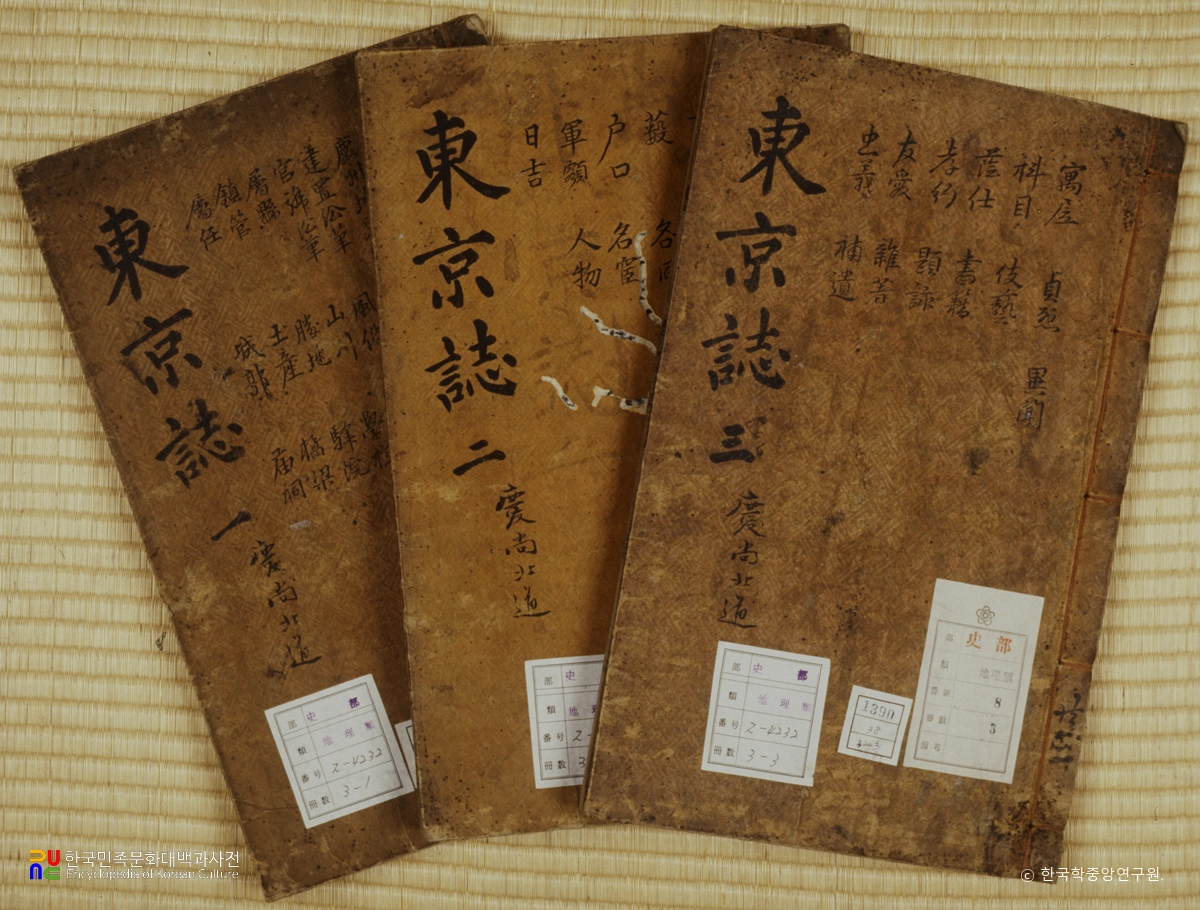 東京誌 一
慶尚北道
鎮管
屬縣
屬任
山川
勝地
土産
驛院
橋梁
部 史部
類 地理類
番号 2-4232
冊数 3-1
東京誌 二
慶尚北道
戶口
軍額
日吉
人物
部 史
類 地理
番号 2-
冊数 3
東京誌 三
慶尚北道
寓居
科目
蔭仕
孝行
友愛
忠義
貞烈
伎藝
書籍
題詠
雜著
補遺
異聞
部 史部
類 地理類
番号 2-4232
冊数 3-3
1390
38
部 史部
類 地理類
8
3
한국민족문화대백과사전
Encyclopedia of Korean Culture
© 한국학중앙연구원.